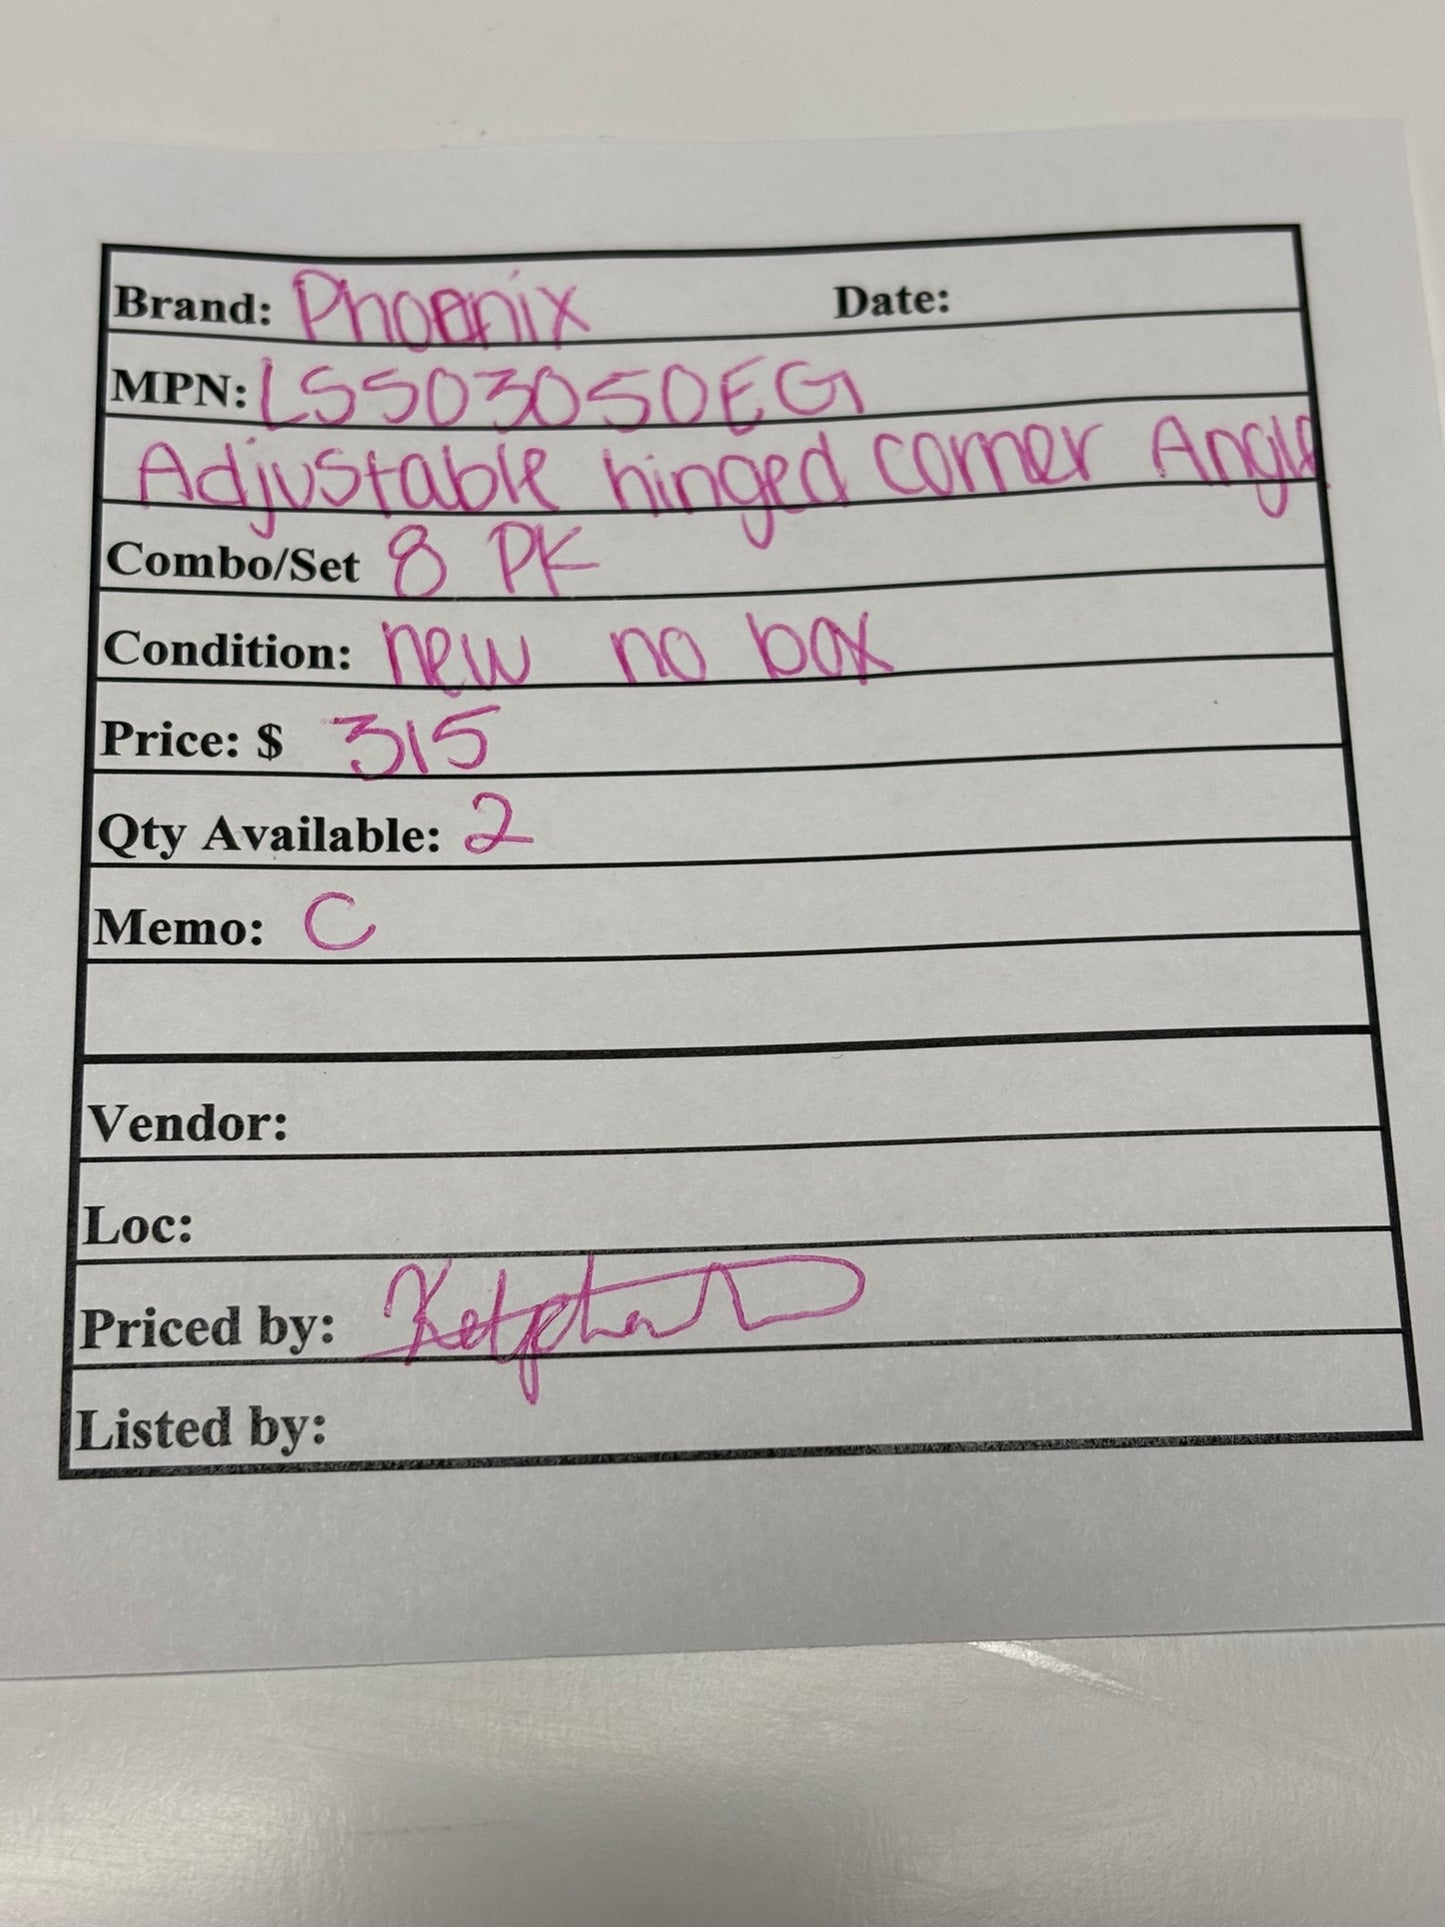 Brand: Phoenix Date:
MPN: LSS03050EG
Adjustable hinged corner Angle
Combo/Set 8 PK
Condition: new no box
Price: $ 315
Qty Available: 2
Memo: C
Vendor:
Loc:
Priced by:
Listed by: